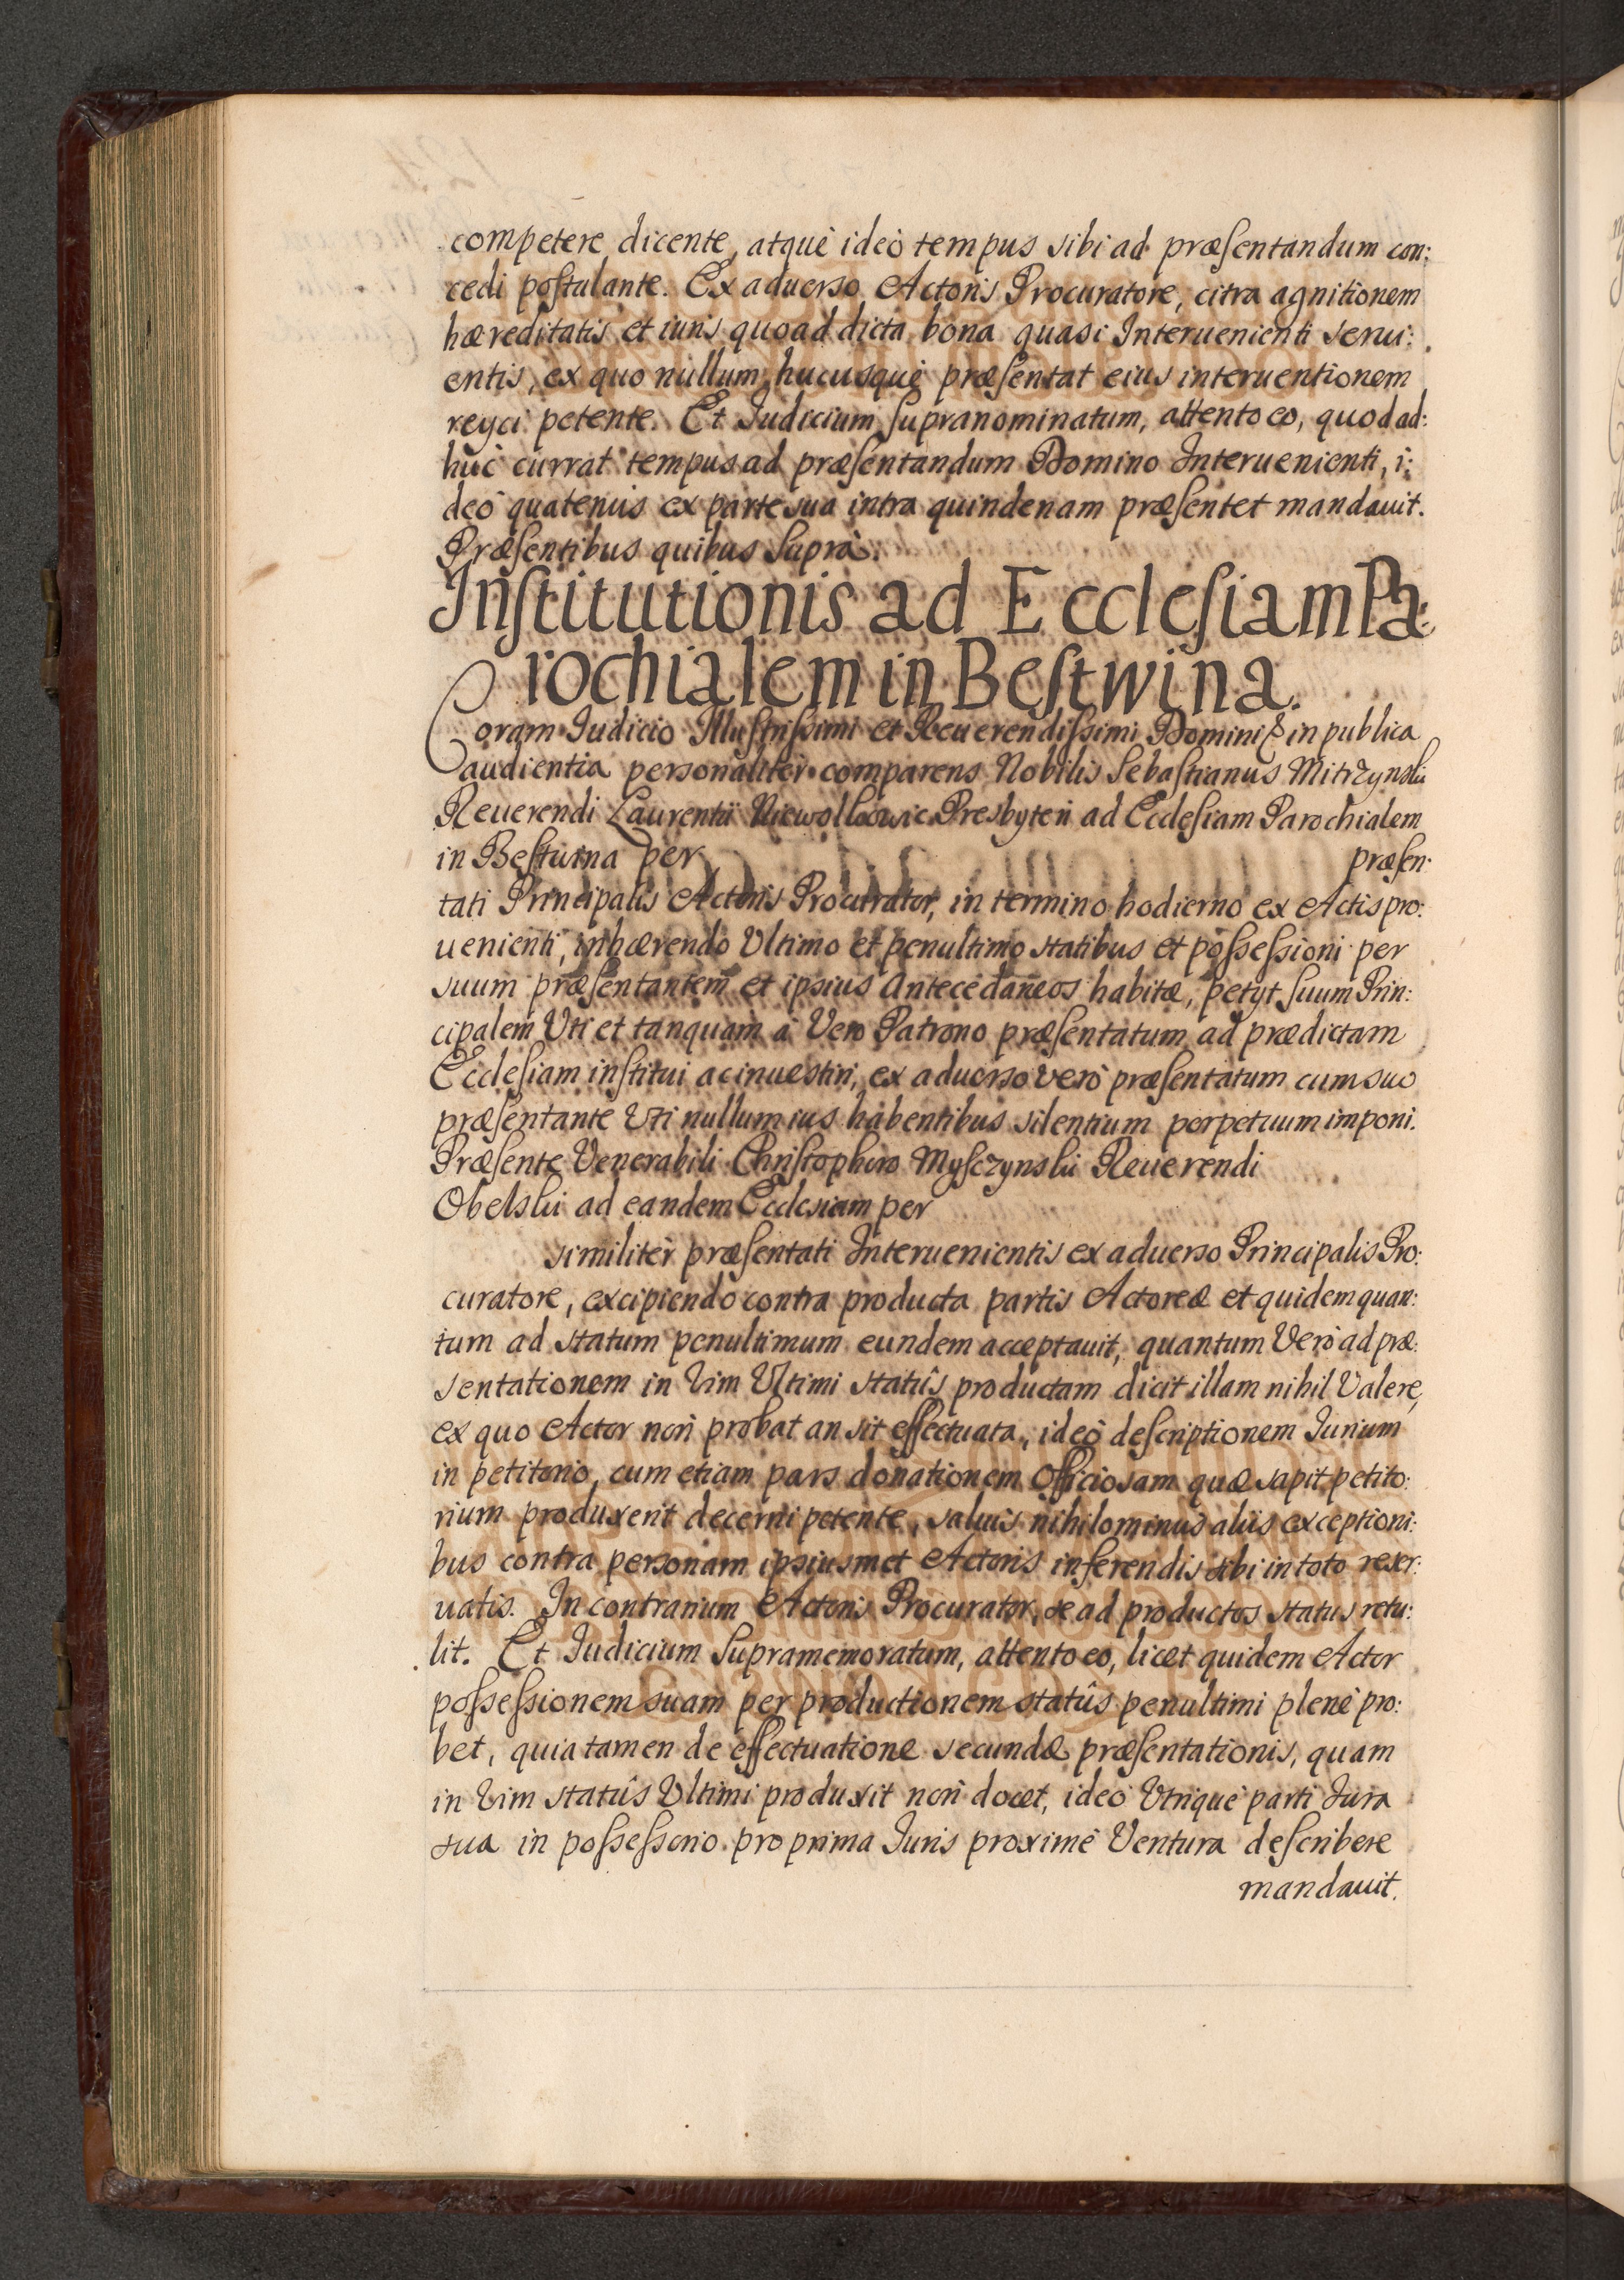 competere dicente, atquè ideò tempus sibi ad præsentandum con:
cedi postulante. Ex aduerso Actoris Procuratore, citra agnitionem
hæreditatis et iuris quoad dicta bona quasi Interuenienti serui:
entis, ex quo nullum hucusquè præsentat eius interuentionem
reyci petente. Et Iudicium supranominatum, attento eo, quod ad:
huc currat tempus ad præsentandum Domino Interuenienti, i:
deò quatenus ex parte sua intra quindenam præsentet mandauit.
Præsentibus quibus suprà.
Institutionis ad Ecclesiam Pa:
rochialem in Bestwina.
Coram Iudicio Illustrissimi et Reuerendissimi Domini & in publica
audientia personaliter comparens Nobilis Sebastianus Mitrzynski
Reuerendi Laurentii Presbyteri ad Ecclesiam Parochialem
in Bestuina per præsen:
tati Principalis Actoris Procurator, in termino hodierno ex Actis pro:
uenienti, inhærendo Ultimo et penultimo statibus et possessioni per
suum præsentantem et ipsius Antecedaneos habitæ, petyt suum Prin:
cipalem Uti et tanquam à Vero Patrono præsentatum ad prædictam
Ecclesiam institui ac inuestiri, ex aduerso verò præsentatum cum suo
præsentante Uti nullum ius habentibus silentium perpetuum imponi.
Præsente Venerabili Christophoro Mysczynski Reuerendi
Obelski ad eandem Ecclesiam per
similitèr præsentati Interuenientis ex aduerso Principalis Pro:
curatore, excipiendo contra producta partis Actoreæ et quidem quan:
tum ad statum penultimum eundem acceptauit, quantum Verò ad præ:
sentationem in Vim Ultimi statûs productam dicit illam nihil Valere,
ex quo Actor non probat an sit effectuata, ideò descriptionem Iurium
in petitorio, cum etiam pars donationem Officiosam quæ sapit petito:
rium produxerit decerni petente, saluis nihilominus aliis exceptioni:
bus contra personam ipsiusmet Actoris inferendis sibi in toto reser:
uatis. In contrarium Actoris Procurator, se ad productos status retu:
lit. Et Iudicium supramemoratum, attento eo, licet quidem Actor
possessionem suam per productionem statûs penultimi plenè pro:
bet, quia tamen de effectuatione secundæ præsentationis, quam
in Vim statûs Ultimi produxit non docet, ideò Utriquè parti Iura
sua in possessorio pro prima Iuris proximè Ventura describere
mandauit.